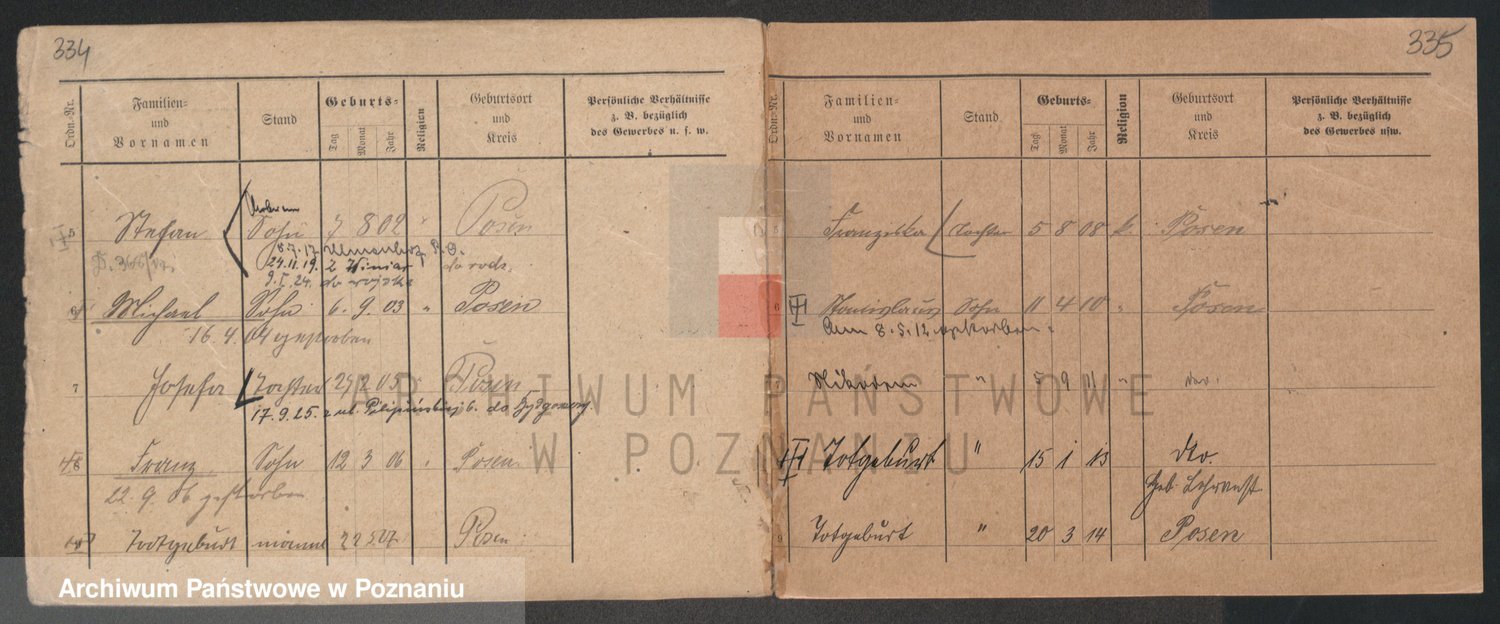 334
Ordn.-Nr.
Familien-
und
Vornamen
Stand
Geburts-
Tag
Monat
Jahr
Religion
Geburtsort
und
Kreis
Persönliche Verhältnisse
z. B. bezüglich
des Gewerbes u. s. w.
5 Stefan Sohn 7 8 02 " Posen
8.7.17
24.11.19. z Winiar do rodz.
9.I.24. do wojska
6 Michael Sohn 6. 9. 03 " Posen
16. 4. 04 gestorben
7 Josefa Tochter 2 05 Posen
17.9.25. z ul. do Bydgoszczy
8 Franz Sohn 12 3 06 " Posen
22. 9. 06 gestorben
Todtgeburt männl 22 5 07 Posen
335
Ordn.-Nr.
Familien-
und
Vornamen
Stand
Geburts-
Tag
Monat
Jahr
Religion
Geburtsort
und
Kreis
Persönliche Verhältnisse
z. B. bezüglich
des Gewerbes usw.
5 Franziska Tochter 5 8 08 k Posen
6 Stanislaus Sohn 11 4 10 " Posen
Am 8.5.12 gestorben.
7 Nikodem " 5 9 11 " dto.
Totgeburt " 15 1 13 dto.
Geb. Lehranst.
9 Totgeburt " 20 3 14 Posen
ARCHIWUM PAŃSTWOWE
W POZNANIU
Archiwum Państwowe w Poznaniu